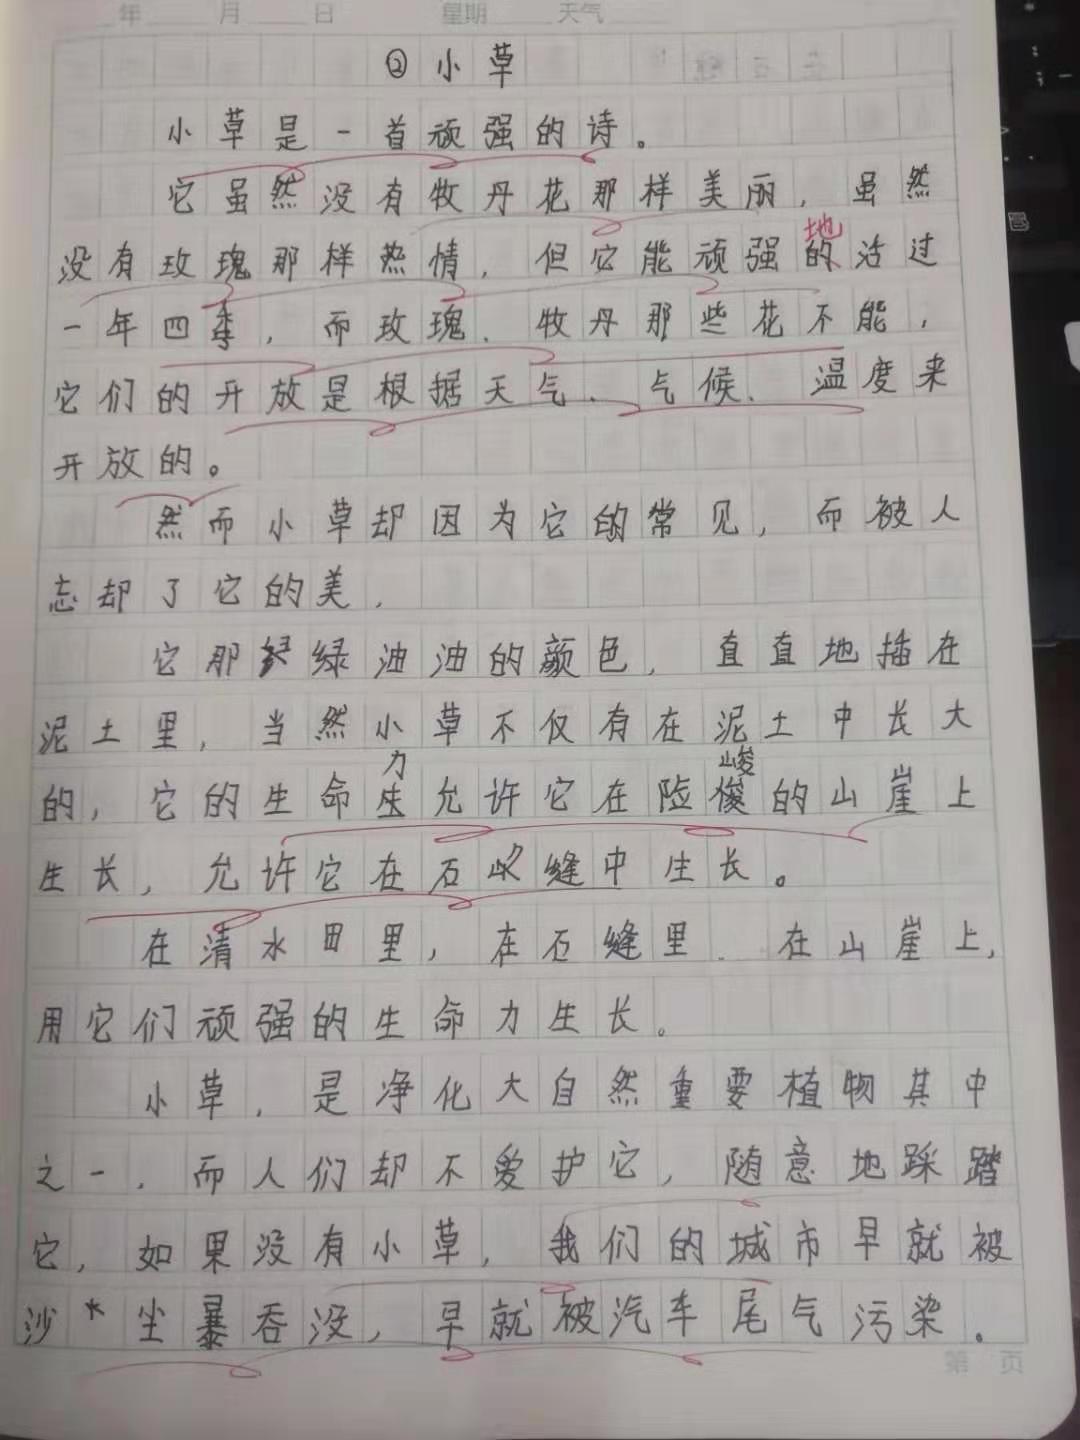 年 月 日 星期 天气
②小草
小草是一首顽强的诗。
它虽然没有牧丹花那样美丽，虽然
地
没有玫瑰那样热情，但它能顽强的活过
一年四季，而玫瑰、牧丹那些花不能，
它们的开放是根据天气、气候、温度来
开放的。
然而小草却因为它的常见，而被人
忘却了它的美，
它那绿油油的颜色，直直地插在
泥土里，当然小草不仅有在泥土中长大
力 峻
的，它的生命允许它在险的山崖上
生长，允许它在石缝中生长。
在清水田里，在石缝里、在山崖上，
用它们顽强的生命力生长。
小草，是净化大自然重要植物其中
之一．而人们却不爱护它，随意地踩踏
它，如果没有小草，我们的城市早就被
沙尘暴吞没，早就被汽车尾气污染。
第 页